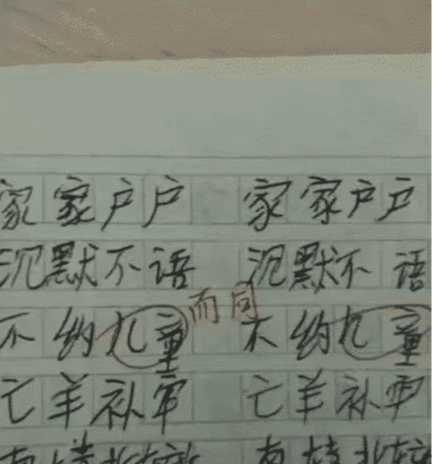 家家户户 家家户户
沉默不语 沉默不语
而同
不约儿童 不约儿童
亡羊补牢 亡羊补牢